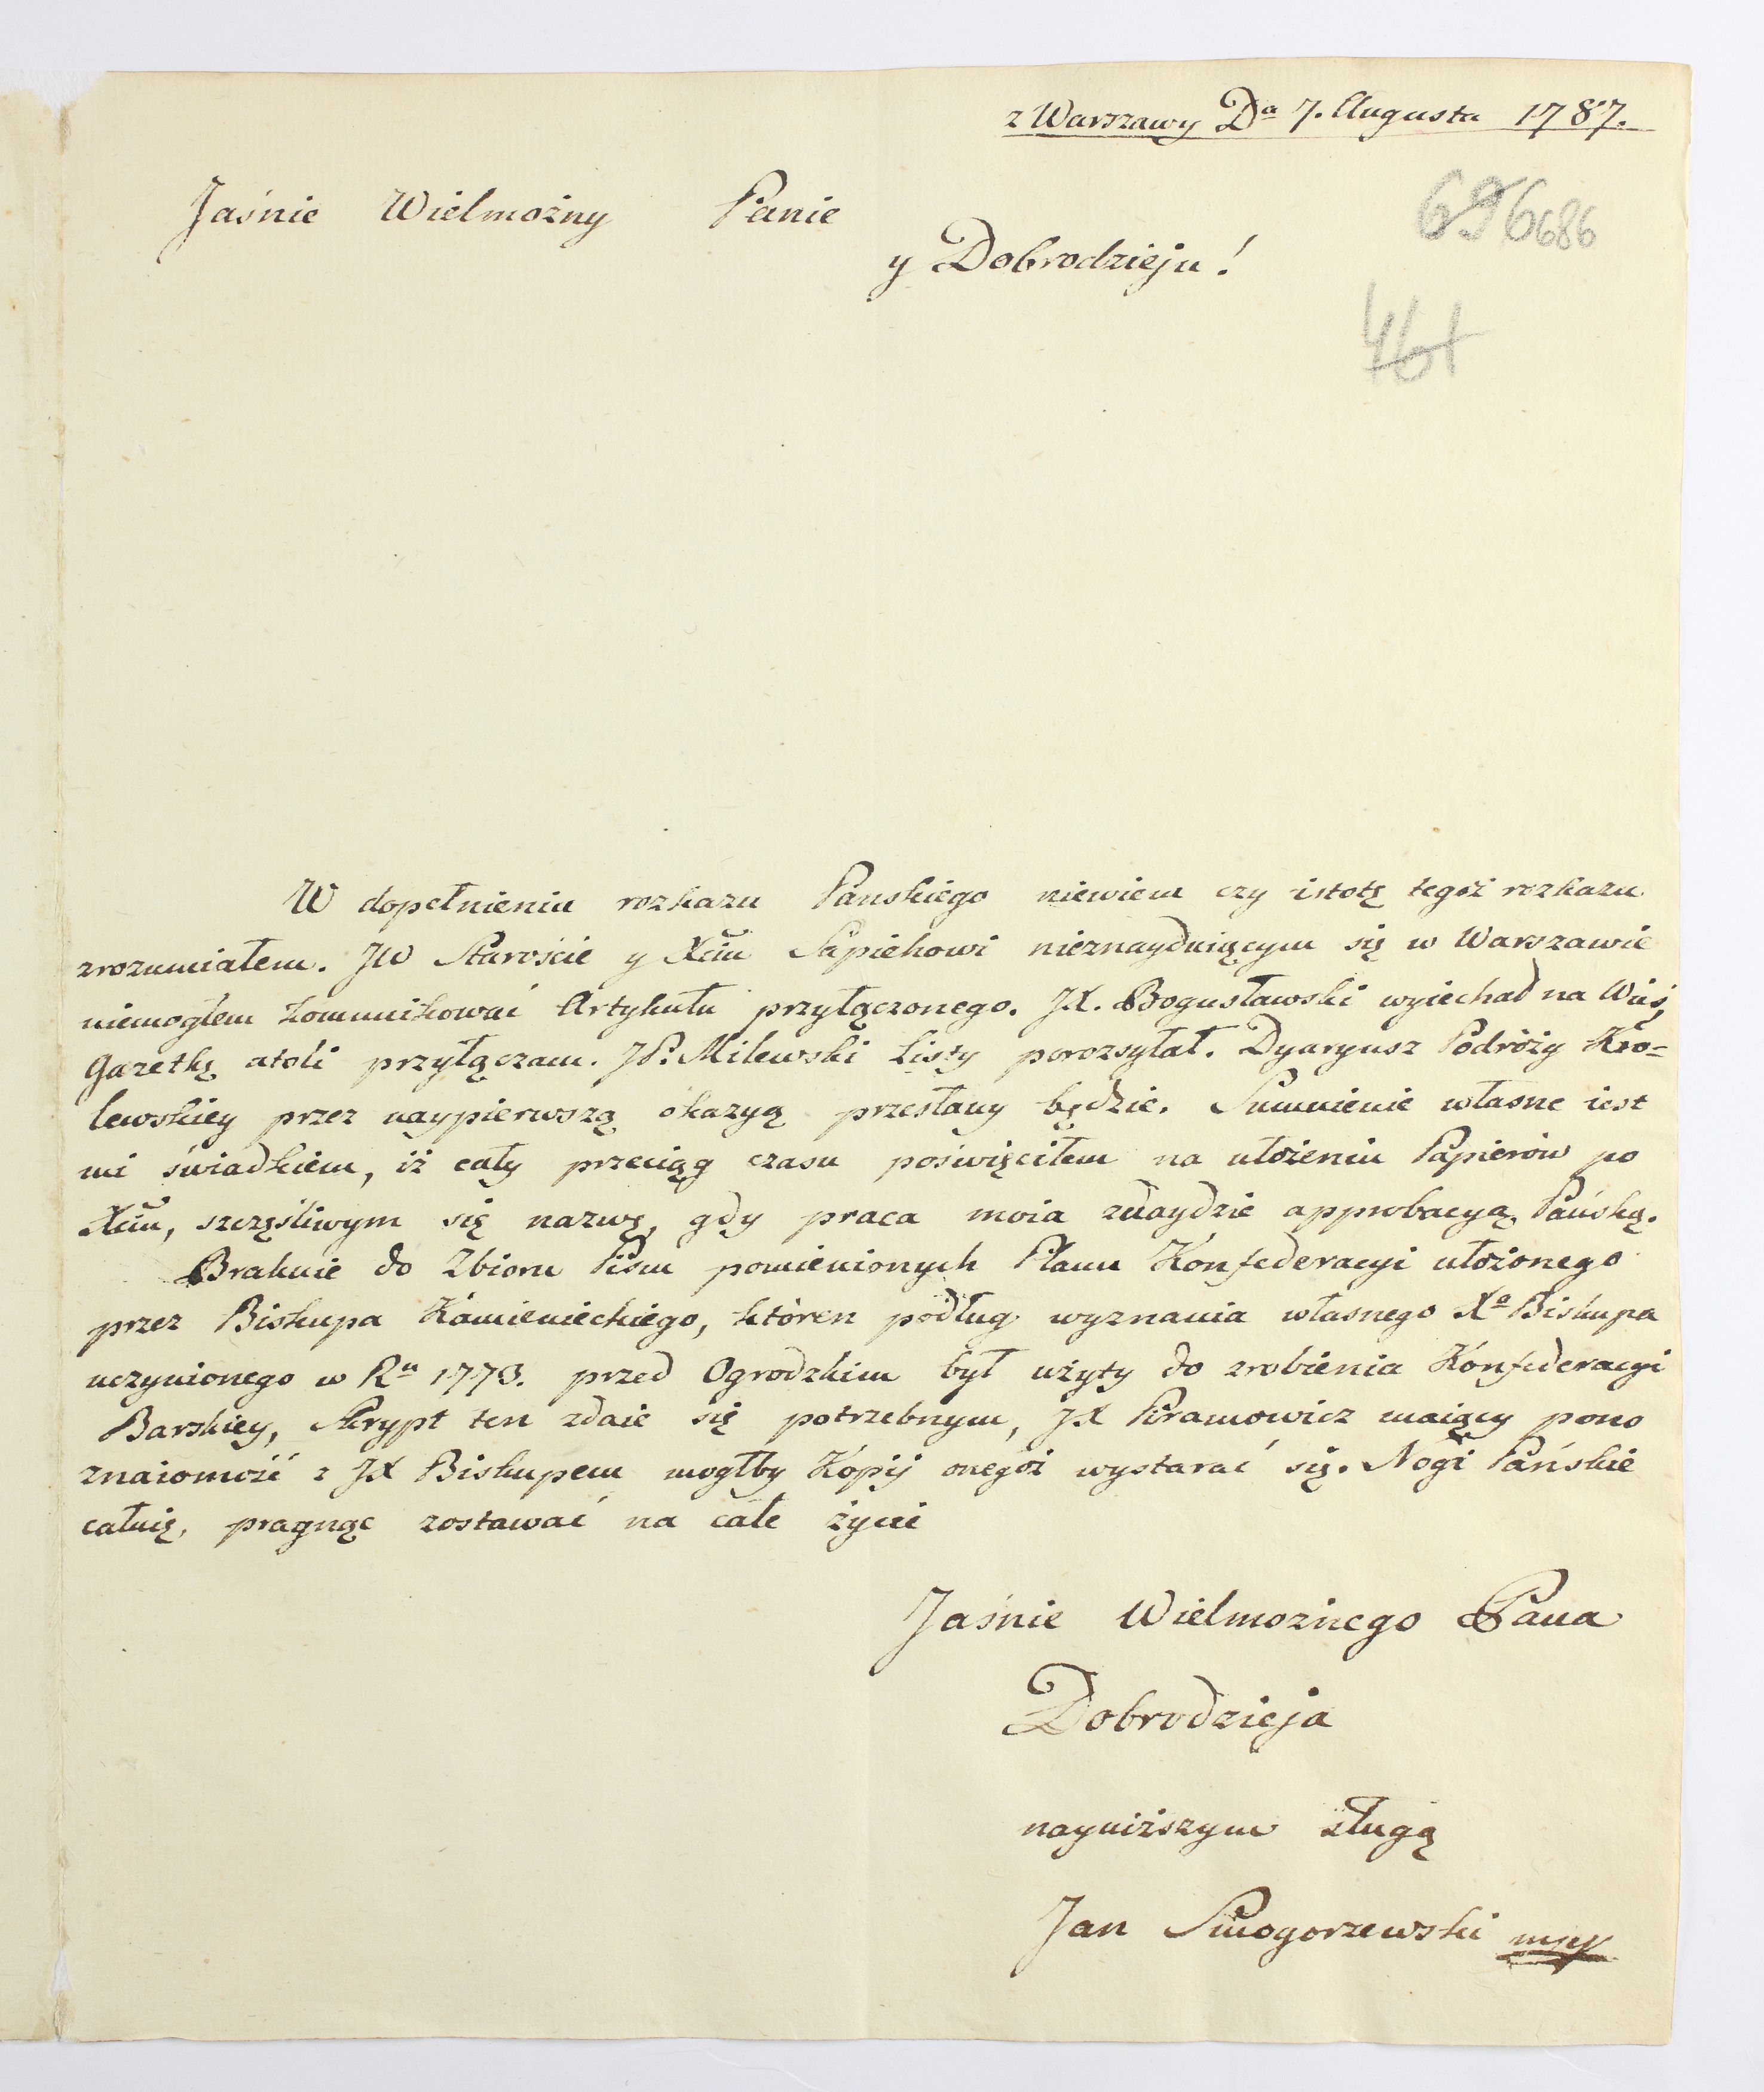 z Warszawy Da 7. Augusta 1787.
Jaśnie Wielmożny Panie
y Dobrodzieju!
696 686
461
W dopełnieniu rozkazu Panskiego niewiem czy istotę tegoż rozkazu
zrozumiałem. JW Staroście y Xciu Sapiehowi nieznayduiącym się w Warszawie
niemogłem kommunikować Artykułu przyłączonego. JX. Bogusławski wyiechał na Wieś,
Gazetkę atoli przyłączam. JP. Milewski Listy porozsyłał. Dyaryusz Podróży Kro=
lewskiey przez naypierwszą okazyą przesłany będzie. Sumnienie własne iest
mi świadkiem, iż cały przeciąg czasu poświęciłem na ułożeniu Papierów po
Xciu, szczęśliwym się nazwę, gdy praca moia znaydzie approbacyą Pańską.
Brakuie do Zbioru Pism pomienionych Planu Konfederacyi ułożonego
przez Biskupa Kamienieckiego, któren podług wyznania własnego Xa Biskupa
uczynionego w Ru 1773. przed Ogrodzkim był użyty do zrobienia Konfederacyi
Barskiey, Skrypt ten zdaie się potrzebnym, JX Piramowicz maiący pono
znaiomość z JX Biskupem mogłby Kopij onegoż wystarać się. Nogi Pańskie
całuię, pragnąc zostawać na całe życie
Jaśnie Wielmożnego Pana
Dobrodzieja
nayniższym sługą
Jan Smogorzewski mp